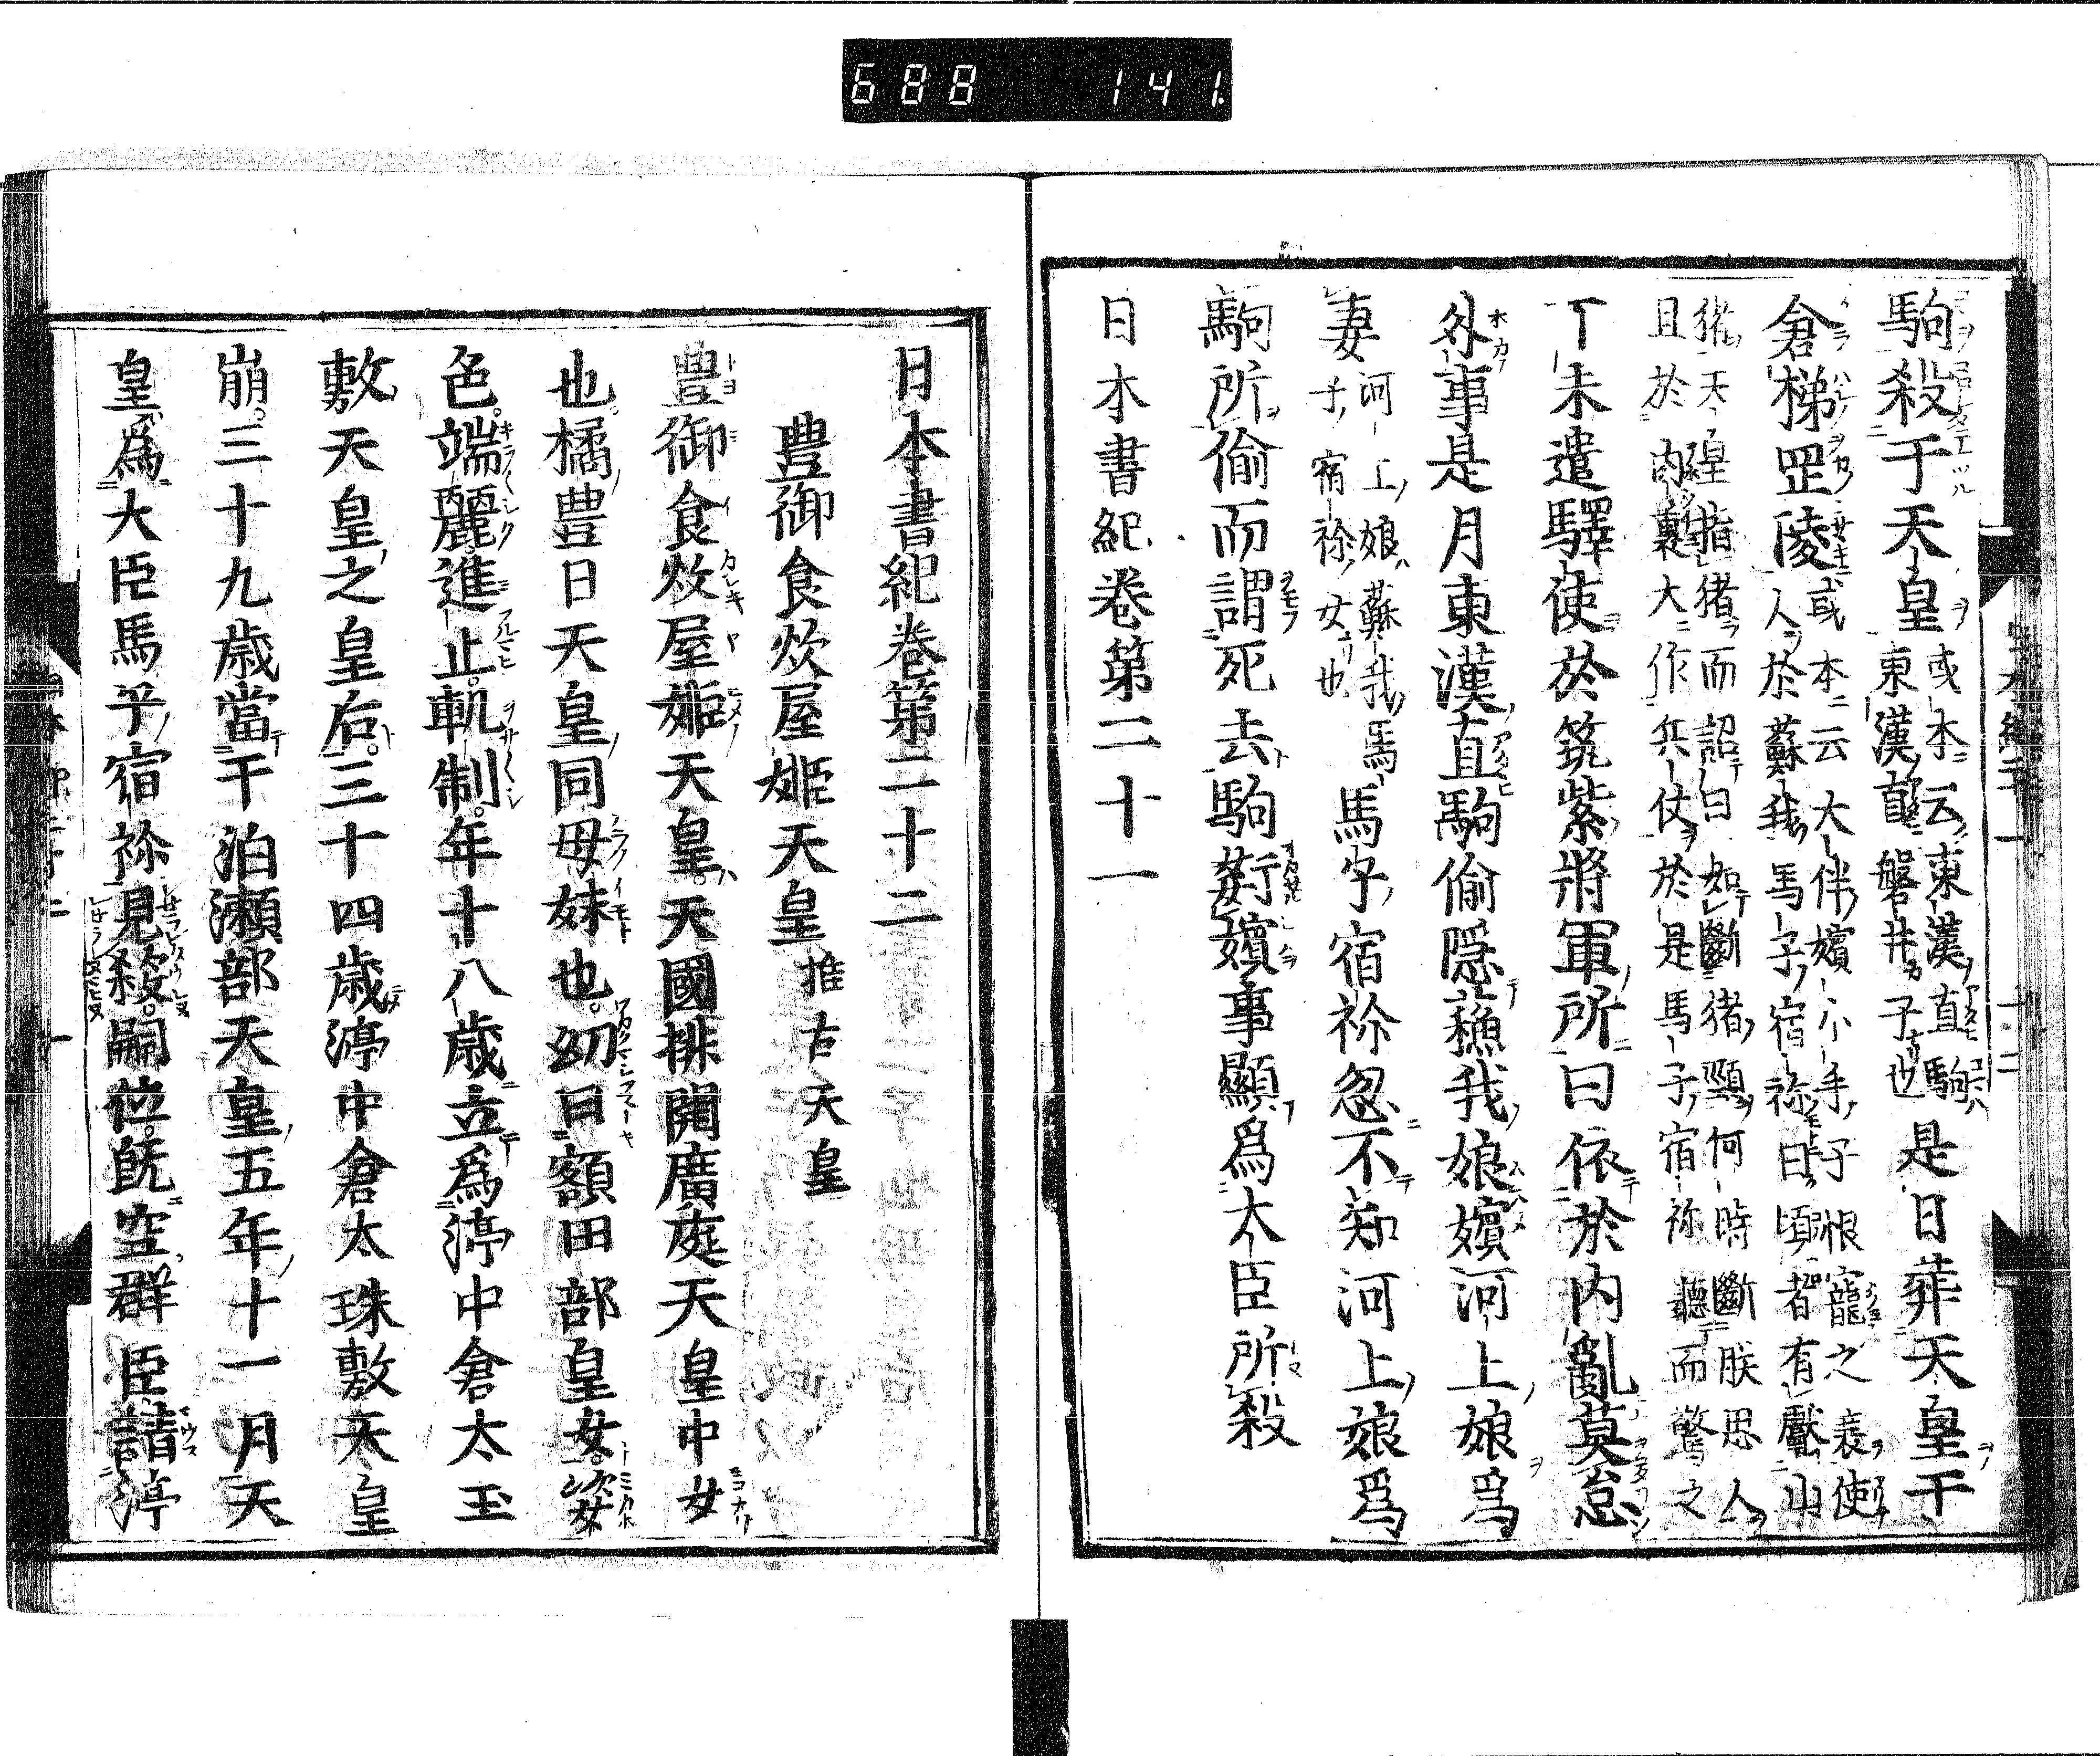 688 141
駒殺于天皇或本云東漢直駒東漢直磐井子也是日葬天皇于
倉梯罡陵或本云大伴嬪小手子恨寵之衰使人於蘇我馬子宿祢曰頃者有獻山
猪天皇指猪而詔曰如斷猪頸何時斷朕思人且於内裏大作兵仗於是馬子宿祢聽而驚之
丁未遣驛使於筑紫將軍所曰依於内亂莫怠
外事是月東漢直駒偷隠蘓我娘嬪河上娘爲
妻河上娘蘇我馬子宿祢女也馬子宿祢忽不知河上娘爲
駒所偷而謂死去駒奸嬪事顯爲大臣所殺
日本書紀卷第二十一
日本書紀卷第二十二
豊御食炊屋姫天皇推古天皇
豊御食炊屋姫天皇。天國排開廣庭天皇中女
也橘豊日天皇同母妹也。幼曰額田部皇女。姿
色。端麗進止。軌制。年十八歳立爲渟中倉太玉
敷天皇之皇后。三十四歳渟中倉太珠敷天皇
崩。三十九歳當于泊瀬部天皇五年十一月天
皇爲大臣馬子宿祢見殺。嗣位。既空群臣請渟